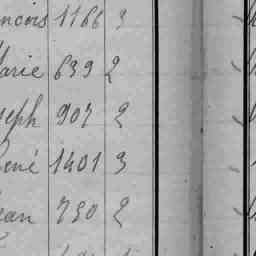 ncois 1166 3
arie 639 2
seph 907 2
René 1401 3
ean 730 2